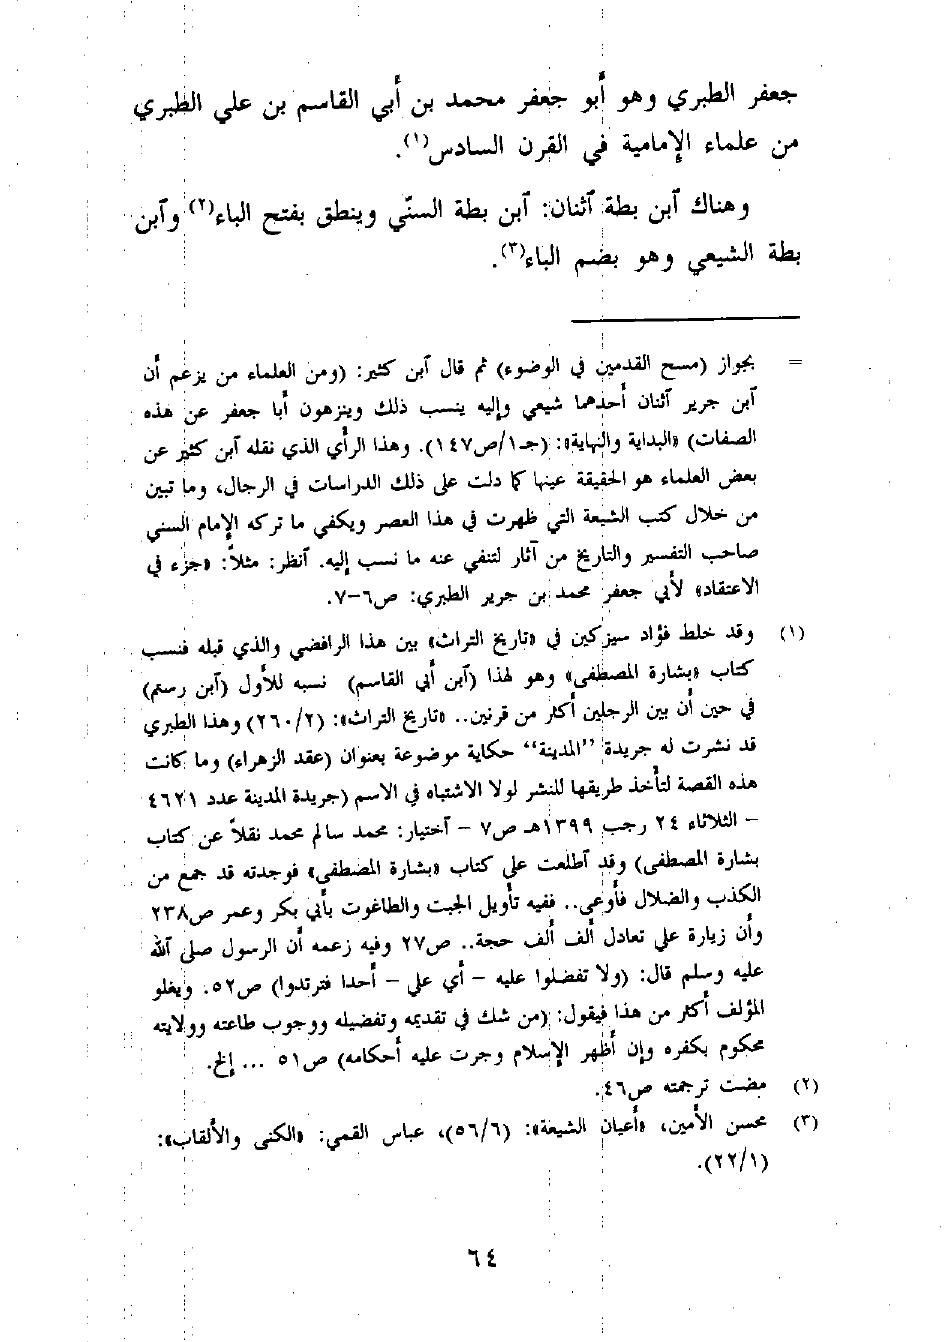 جعفر الطبري وهو أبو جعفر محمد بن أبي القاسم بن علي الطبري
من علماء الإمامية في القرن السادس(١).
وهناك آبن بطة آثنان: آبن بطة السنّي وينطق بفتح الباء(٢) وآبن
بطة الشيعي وهو بضم الباء(٣).
= بجواز (مسح القدمين في الوضوء) ثم قال آبن كثير: (ومن العلماء من يزعم أن
آبن جرير آثنان أحدهما شيعي وإليه ينسب ذلك وينزهون أبا جعفر عن هذه
الصفات) «البداية والنهاية»: (جـ١/ص١٤٧). وهذا الرأي الذي نقله آبن كثير عن
بعض العلماء هو الحقيقة عينها كما دلت على ذلك الدراسات في الرجال، وما تبين
من خلال كتب الشيعة التي ظهرت في هذا العصر ويكفي ما تركه الإمام السني
صاحب التفسير والتاريخ من آثار لتنفي عنه ما نسب إليه. آنظر: مثلاً: «جزء في
الاعتقاد» لأبي جعفر محمد بن جرير الطبري: ص٦-٧.
(١) وقد خلط فؤاد سيزكين في «تاريخ التراث» بين هذا الرافضي والذي قبله فنسب
كتاب «بشارة المصطفى» وهو لهذا (آبن أبي القاسم) نسبه للأول (آبن رستم)
في حين أن بين الرجلين أكثر من قرنين.. «تاريخ التراث»: (٢٦٠/٢) وهذا الطبري
قد نشرت له جريدة "المدينة" حكاية موضوعة بعنوان (عقد الزهراء) وما كانت
هذه القصة لتأخذ طريقها للنشر لولا الاشتباه في الاسم (جريدة المدينة عدد ٤٦٢١
- الثلاثاء ٢٤ رجب ١٣٩٩هـ ص٧ - آختيار: محمد سالم محمد نقلاً عن كتاب
بشارة المصطفى) وقد آطلعت على كتاب «بشارة المصطفى» فوجدته قد جمع من
الكذب والضلال فأوعى.. ففيه تأويل الجبت والطاغوت بأبي بكر وعمر ص٢٣٨
وأن زيارة علي تعادل ألف ألف حجة.. ص٢٧ وفيه زعمه أن الرسول صلى آلله
عليه وسلم قال: (ولا تفضلوا عليه - أي علي - أحدا فترتدوا) ص٥٢. ويغلو
المؤلف أكثر من هذا فيقول: (من شك في تقديمه وتفضيله ووجوب طاعته وولايته
محكوم بكفره وإن أظهر الإسلام وجرت عليه أحكامه) ص٥١ ... إلخ.
(٢) مضت ترجمته ص٤٦.
(٣) محسن الأمين، «أعيان الشيعة»: (٥٦/٦)، عباس القمي: «الكنى والألقاب»:
(٢٢/١).
٦٤